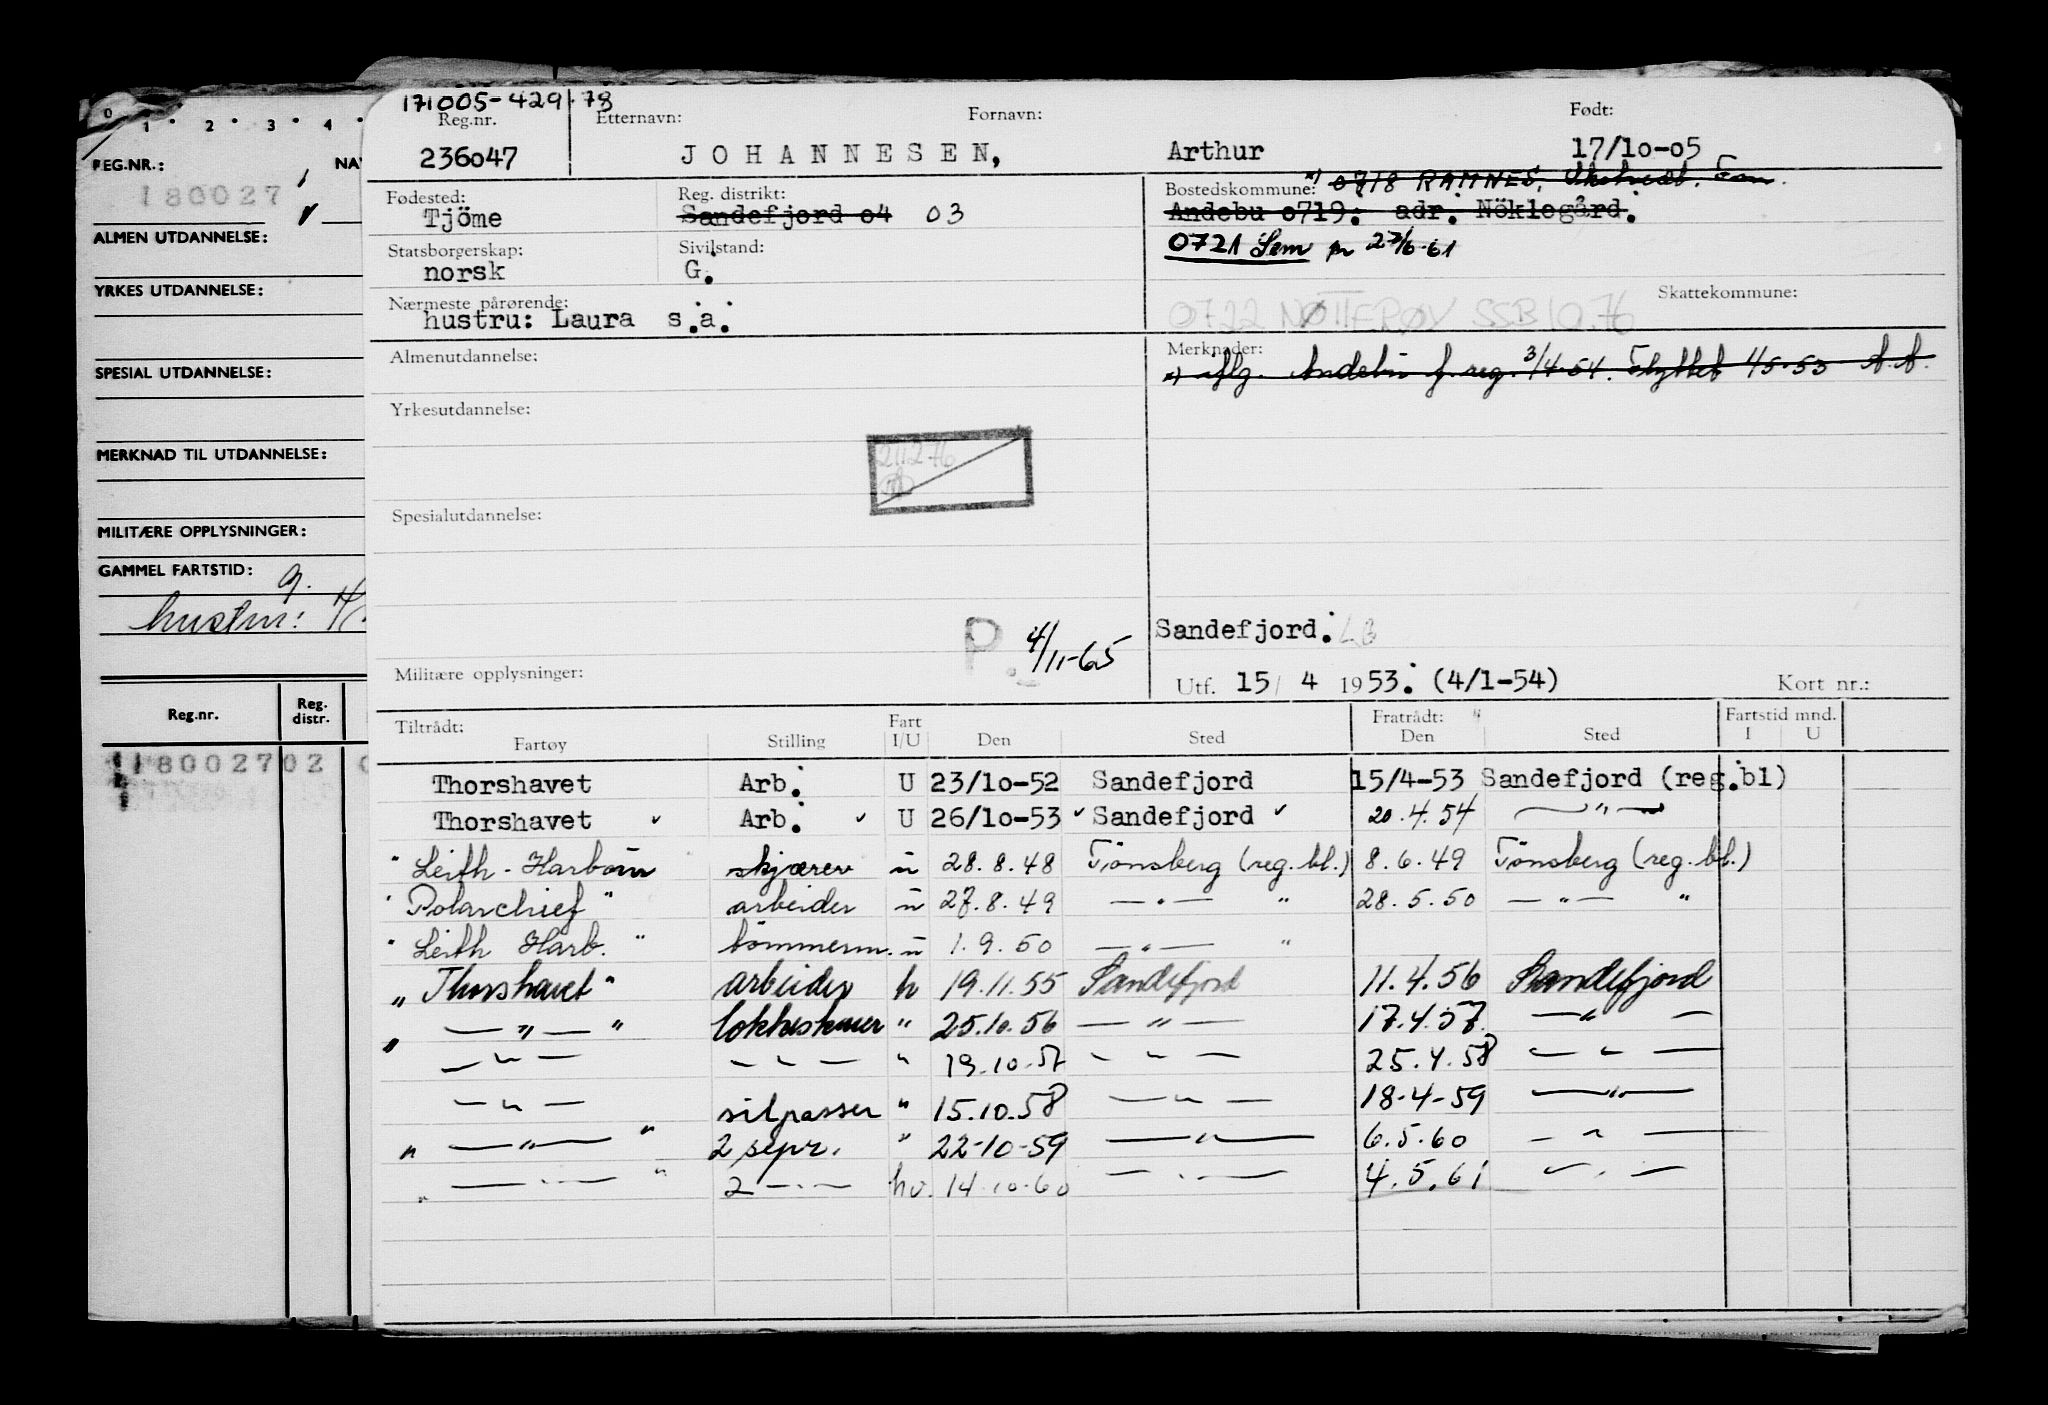 0 1 2 3 4
REG.NR.: NAV
180027
ALMEN UTDANNELSE:
YRKES UTDANNELSE:
SPESIAL UTDANNELSE:
MERKNAD TIL UTDANNELSE:
MILITÆRE OPPLYSNINGER:
GAMMEL FARTSTID: g.
hustru: H
Reg.nr. Reg. distr.
18002702
171005-429 78
Reg.nr. Etternavn: Fornavn: Født:
236o47 JOHANNESEN, Arthur 17/1o-o5
Fødested: Reg. distrikt: Bostedskommune: *) 0718 RAMNES,
Tjöme Sandefjord o4 03 Andebu o719: adr. Nöklegård.
Statsborgerskap: Sivilstand: 0721 Sem pr 27/6-61
norsk G.
Nærmeste pårørende: Skattekommune:
hustru: Laura s.a. 0722 NØTTERØY SSB 10.76
Almenutdannelse: Merknader:
*) iflg. Andebu f.reg. 3/4-54. Flyttet 1/5-53 A.A.
Yrkesutdannelse:
211276
Spesialutdannelse:
P. 4/11-65 Sandefjord. LB
Militære opplysninger: Utf. 15/ 4 1953. (4/1-54) Kort nr.:
Tiltrådt: Fart Fratrådt: Fartstid mnd.
Fartøy Stilling I/U Den Sted Den Sted I U
Thorshavet Arb. U 23/1o-52 Sandefjord 15/4-53 Sandefjord (reg.bl)
Thorshavet Arb. U 26/1o-53 Sandefjord 20.4.54 — " —
" Leith-Harbour skjærer u 28.8.48 Tönsberg (reg.bl.) 8.6.49 Tönsberg (reg.bl.)
" Polarchief " arbeider u 27.8.49 — " — " 28.5.50 — " — "
" Leith Harb. " tömmerm. u 1.9.50 — " — "
" Thorshavet " arbeider h 19.11.55 Sandefjord 11.4.56 Sandefjord
" — " — " kokkeskauer " 25.10.56 — " — 17.4.57 — " —
— " — — " — " 19.10.57 — " — 25.4.58 — " —
— " — silpasser " 15.10.58 — " — 18-4-59 — " —
" — " — " 2 sepr. " 22-10-59 — " — 6.5.60 — " —
" — " — " 2 — " — hv. 14.10.60 — " — 4.5.61 — " —